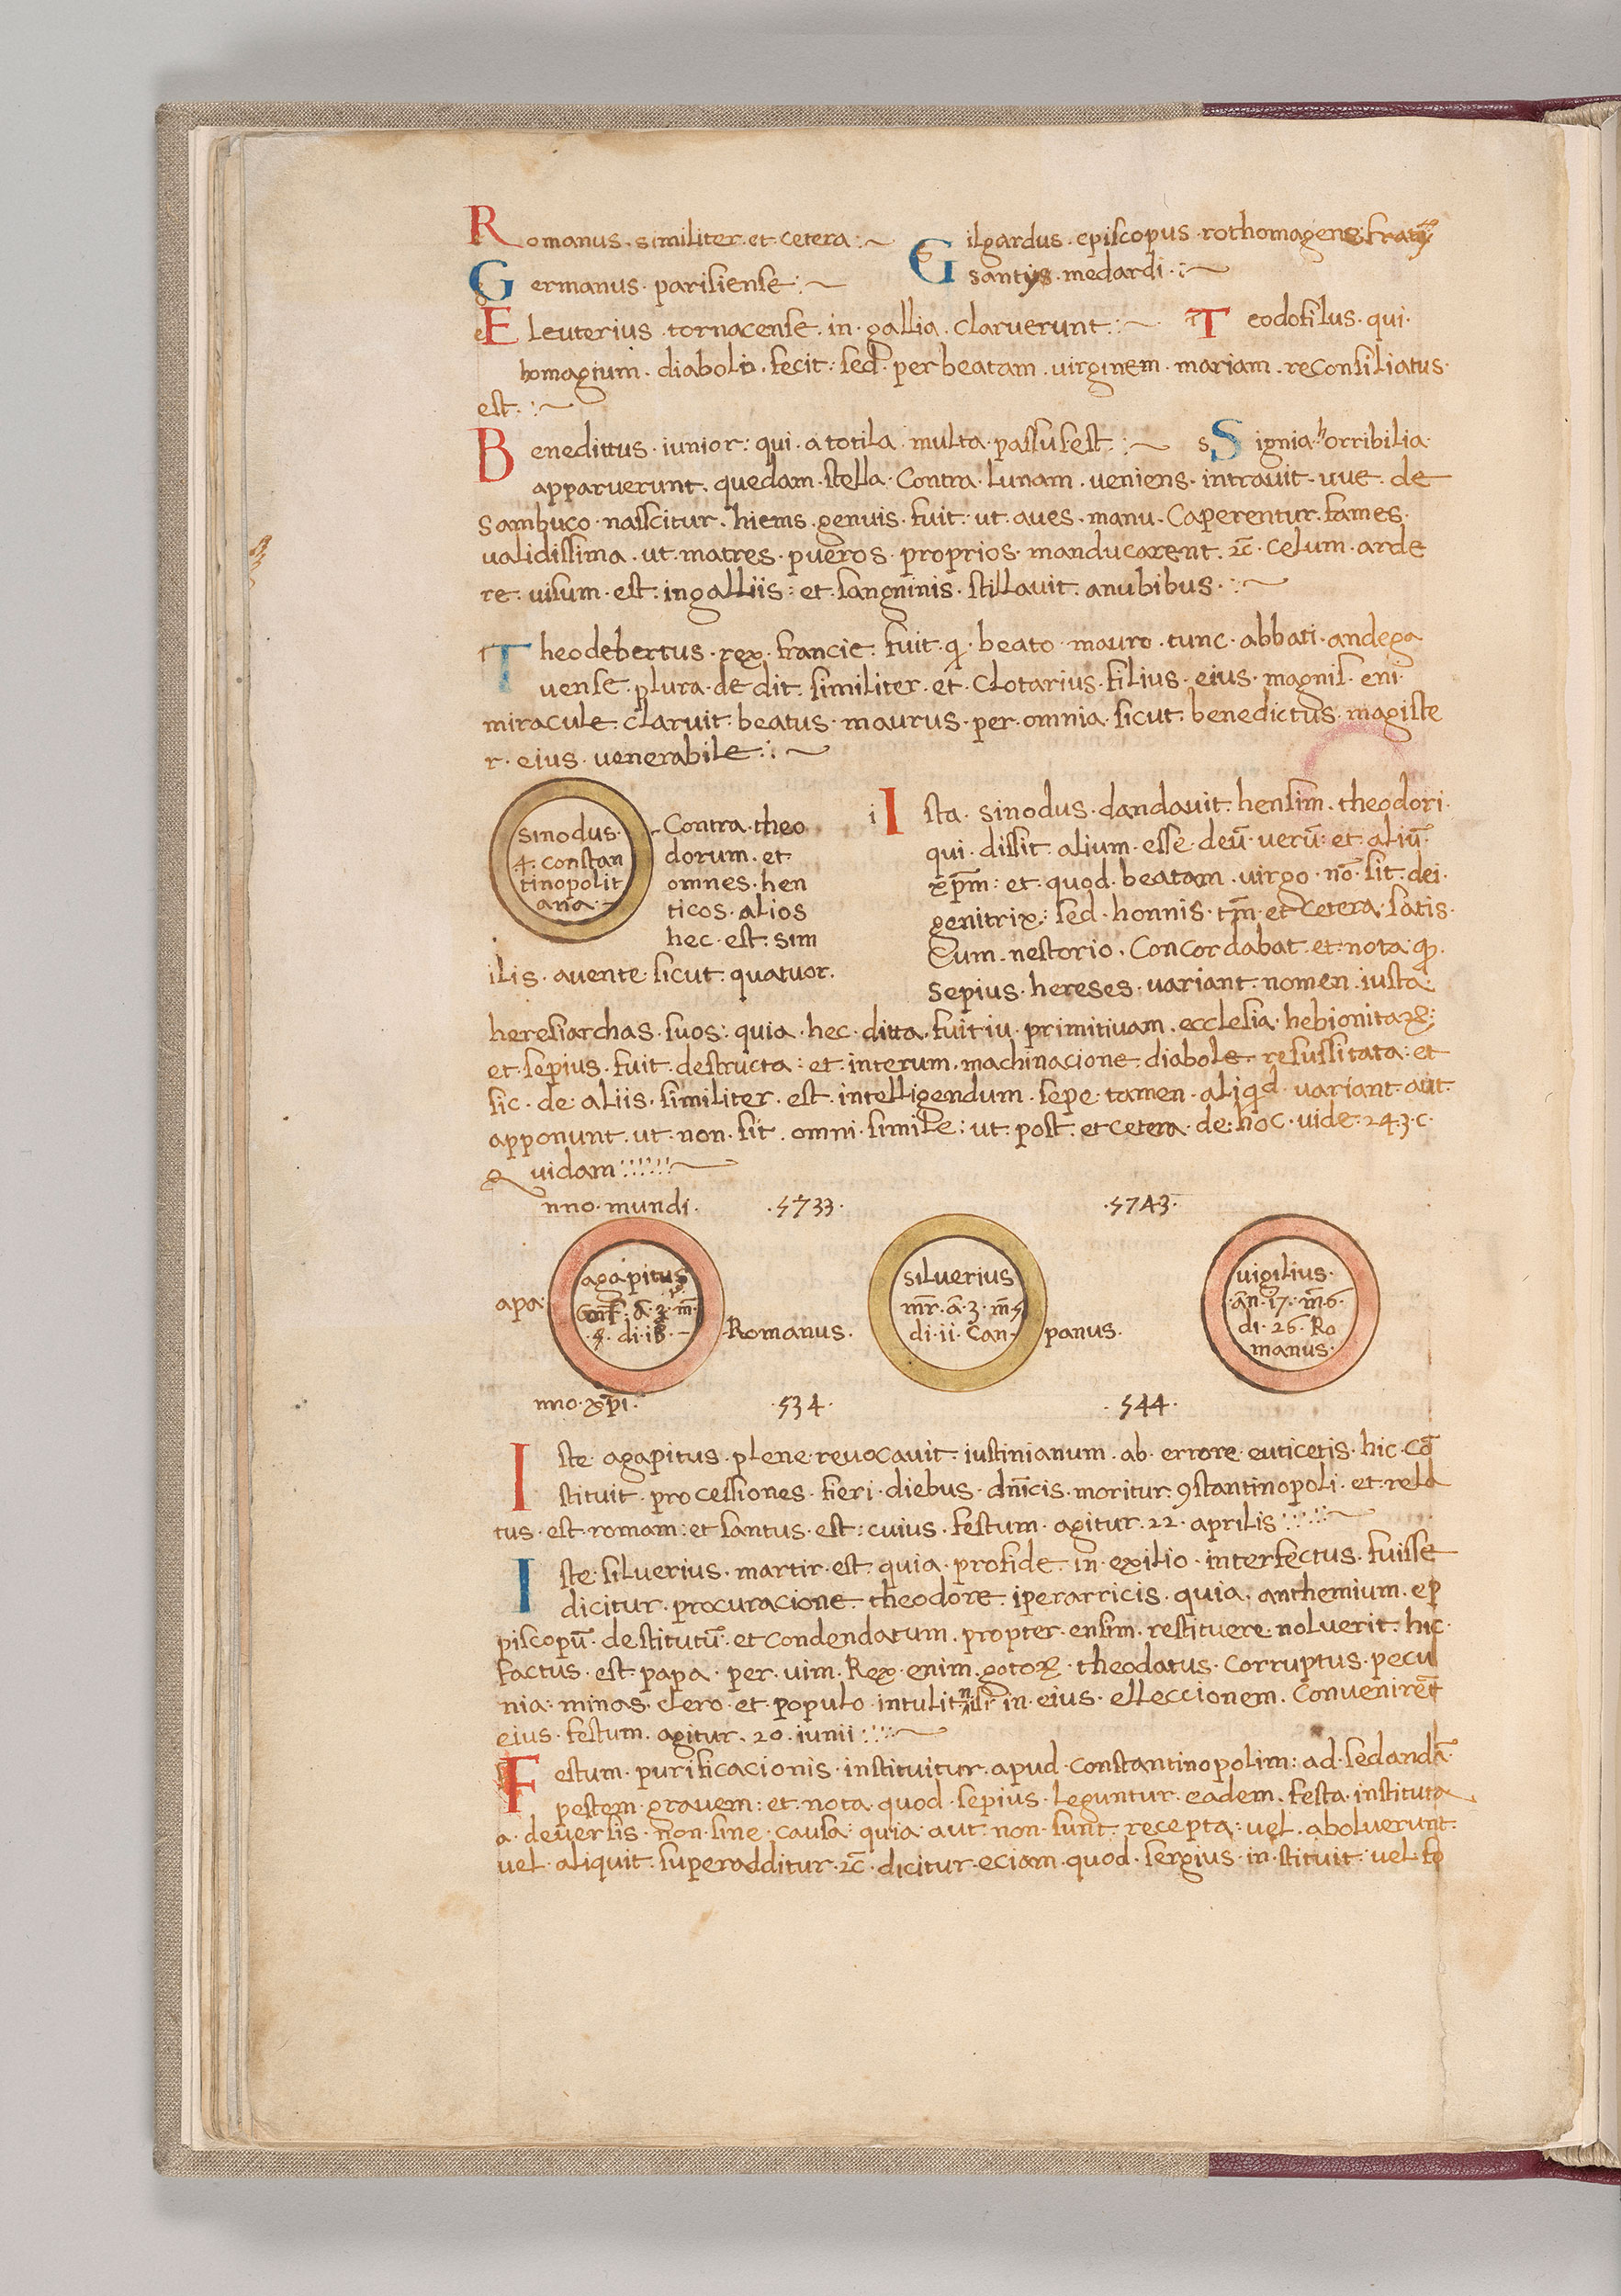 Romanus · similiter · et · cetera :~
Germanus · parisiense :~
Gilgardus · episcopus · rothomagens
santus · medardi · :~
Eleuterius · tornacense · in · gallia · claruerunt :~ Teodofilus · qui ·
homagium · diabolo · fecit : sed · per beatam · virginem · mariam · reconsiliatus ·
est · :~
Benedittus · iunior : qui · a totila · multa · passus est :~ Signia · horribilia ·
apparuerunt · quedam · stella · contra · lunam · veniens · intravit · uve · de
sambuco · nasscitur · hiems · genuis · fuit · ut · aves · manu · caperentur · fames ·
validissima · ut · matres · pueros · proprios · manducarent · ⁊c̄ · celum · arde
re · visum · est · in galliis : et · sangninis · stillavit · anubibus · :~
Theodebertus · rex · francie · fuit · q · beato · mauro · tunc · abbati · andega
vense · plura · dedit · similiter · et · clotarius · filius · eius · magnis · eni ·
miracule · claruit · beatus · maurus · per · omnia · sicut · benedictus · magiste
r · eius · venerabile :~
sinodus ·
4 · constan
tinopolit
ana ·
Contra · theo
dorum · et
omnes · hen
ticos · alios
hec · est · sim
ilis · avente · sicut · quatuor ·
Ista · sinodus · dandavit · hensim · theodori ·
qui · dissit · alium · esse · deū · verū · et · aliū ·
xp̄m : et · quod · beatam · virgo · nō · sit · dei ·
genitrix : sed · honnis · tm̄ · et cetera · satis ·
Cum · nestorio · concordabat · et · nota · q ·
sepius · hereses · variant · nomen · iusta ·
heresiarchas · suos : quia · hec · ditta · fuit iu · primitivam · ecclesia · hebionitaꝝ :
et · sepius · fuit · destructa : et · interum · machinacione · diabole · resussitata : et
sic · de · aliis · similiter · est · intelligendum · sepe · tamen · aliqd · variant · aut ·
apponunt · ut · non · sit · omni · simile : ut · post · et cetera · de · hoc · vide · 243 · c ·
Quidam ::::::~
nno · mundi · · 5733 · · 5743 ·
apa ·
agapitus
Conf · ā · 3 · m̄
· 5 · di · 18 ·
Romanus ·
siluerius
mr̄ · ā · 3 · m̄ 5
di · ii · Can ·
panus ·
vigilius ·
ān · 17 · m̄ 6 ·
di · 26 · Ro
manus ·
nno · xp̄i · · 534 · · 544 ·
Iste · agapitus · plene · revocavit · iustinianum · ab · errore · euticetis · hic · cō
stituit · processiones · fieri · diebus · dn̄icis · moritur · ꝯstantinopoli · et · rela
tus · est · romam : et santus · est : cuius · festum · agitur · 22 · aprilis :::::~
Iste · siluerius · martir · est · quia · profide · in · exilio · interfectus · fuisse
dicitur · procuracione · theodore · iperarricis · quia · anthemium · ep
piscopū · destitutū · et condendatum · propter · ensim · restituere · noluerit · hic ·
factus · est · papa · per · vim · Rex · enim · gotoꝝ · theodatus · corruptus · pecu
nia · minas · clero · et · populo · intulit · in · eius · elleccionem · Convenirēt
eius · festum · agitur · 20 · iunii ::::~
Festum · purificacionis · instituitur · apud · constantinopolim : ad · sedandā ·
pestem · gravem : et · nota · quod · sepius · leguntur · eadem · festa · instituta ·
a · deversis · non · sine · causa : quia · aut · non · sunt · recepta : vel · aboluerunt ·
vel · aliquit · superadditur · ⁊c̄ · dicitur · eciam · quod · sergius · in · stituit · vel · fo